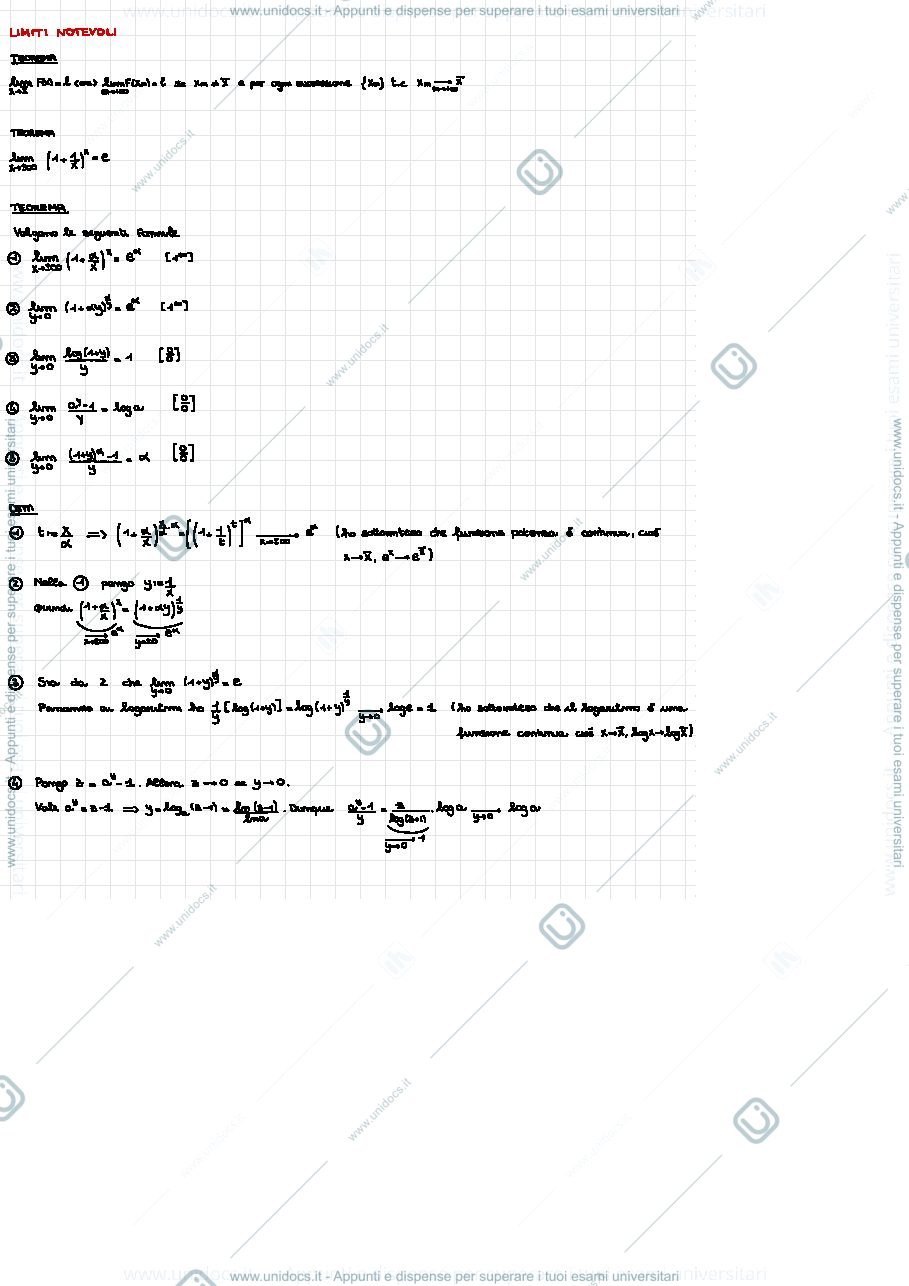 www.unidocs.it - Appunti e dispense per superare i tuoi esami universitari
LIMITI NOTEVOLI
TEOREMA
lim x→x̄ F(x) = l <=> lim n→+∞ F(xn) = l se xn ≠ x̄ e per ogni successione {xn} t.c. xn → n→+∞ x̄
TEOREMA
lim x→±∞ (1 + 1/x)^x = e
TEOREMA
Valgono le seguenti formule
① lim x→±∞ (1 + α/x)^x = e^α [1^∞]
② lim y→0 (1 + αy)^(1/y) = e^α [1^∞]
③ lim y→0 log(1+y)/y = 1 [0/0]
④ lim y→0 (a^y - 1)/y = log a [0/0]
⑤ lim y→0 ((1+y)^α - 1)/y = α [0/0]
Dim
① t := x/α => (1 + α/x)^(x/α·α) = [(1 + 1/t)^t]^α → x→±∞ e^α (ho sottointeso che funzione potenza è continua, cioè
x→x̄, e^x→e^x̄)
② Nella ① pongo y := 1/x
Quindi (1 + α/x)^x = (1 + αy)^(1/y)
→ x→±∞ e^α → y→0 e^α
③ So da 2 che lim y→0 (1+y)^(1/y) = e
Passando ai logaritmi ho 1/y [log(1+y)] = log(1+y)^(1/y) → y→0 log e = 1 (ho sottointeso che il logaritmo è una
funzione continua cioè x→x̄, log x→log x̄)
④ Pongo z = a^y - 1. Allora z → 0 se y → 0.
Vale a^y = z - 1 => y = log_a (z - 1) = log(z-1)/ln a. Dunque (a^y - 1)/y = z/log(z+1) · log a → y→0 log a
→ y→0 1
www.unidocs.it - Appunti e dispense per superare i tuoi esami universitari